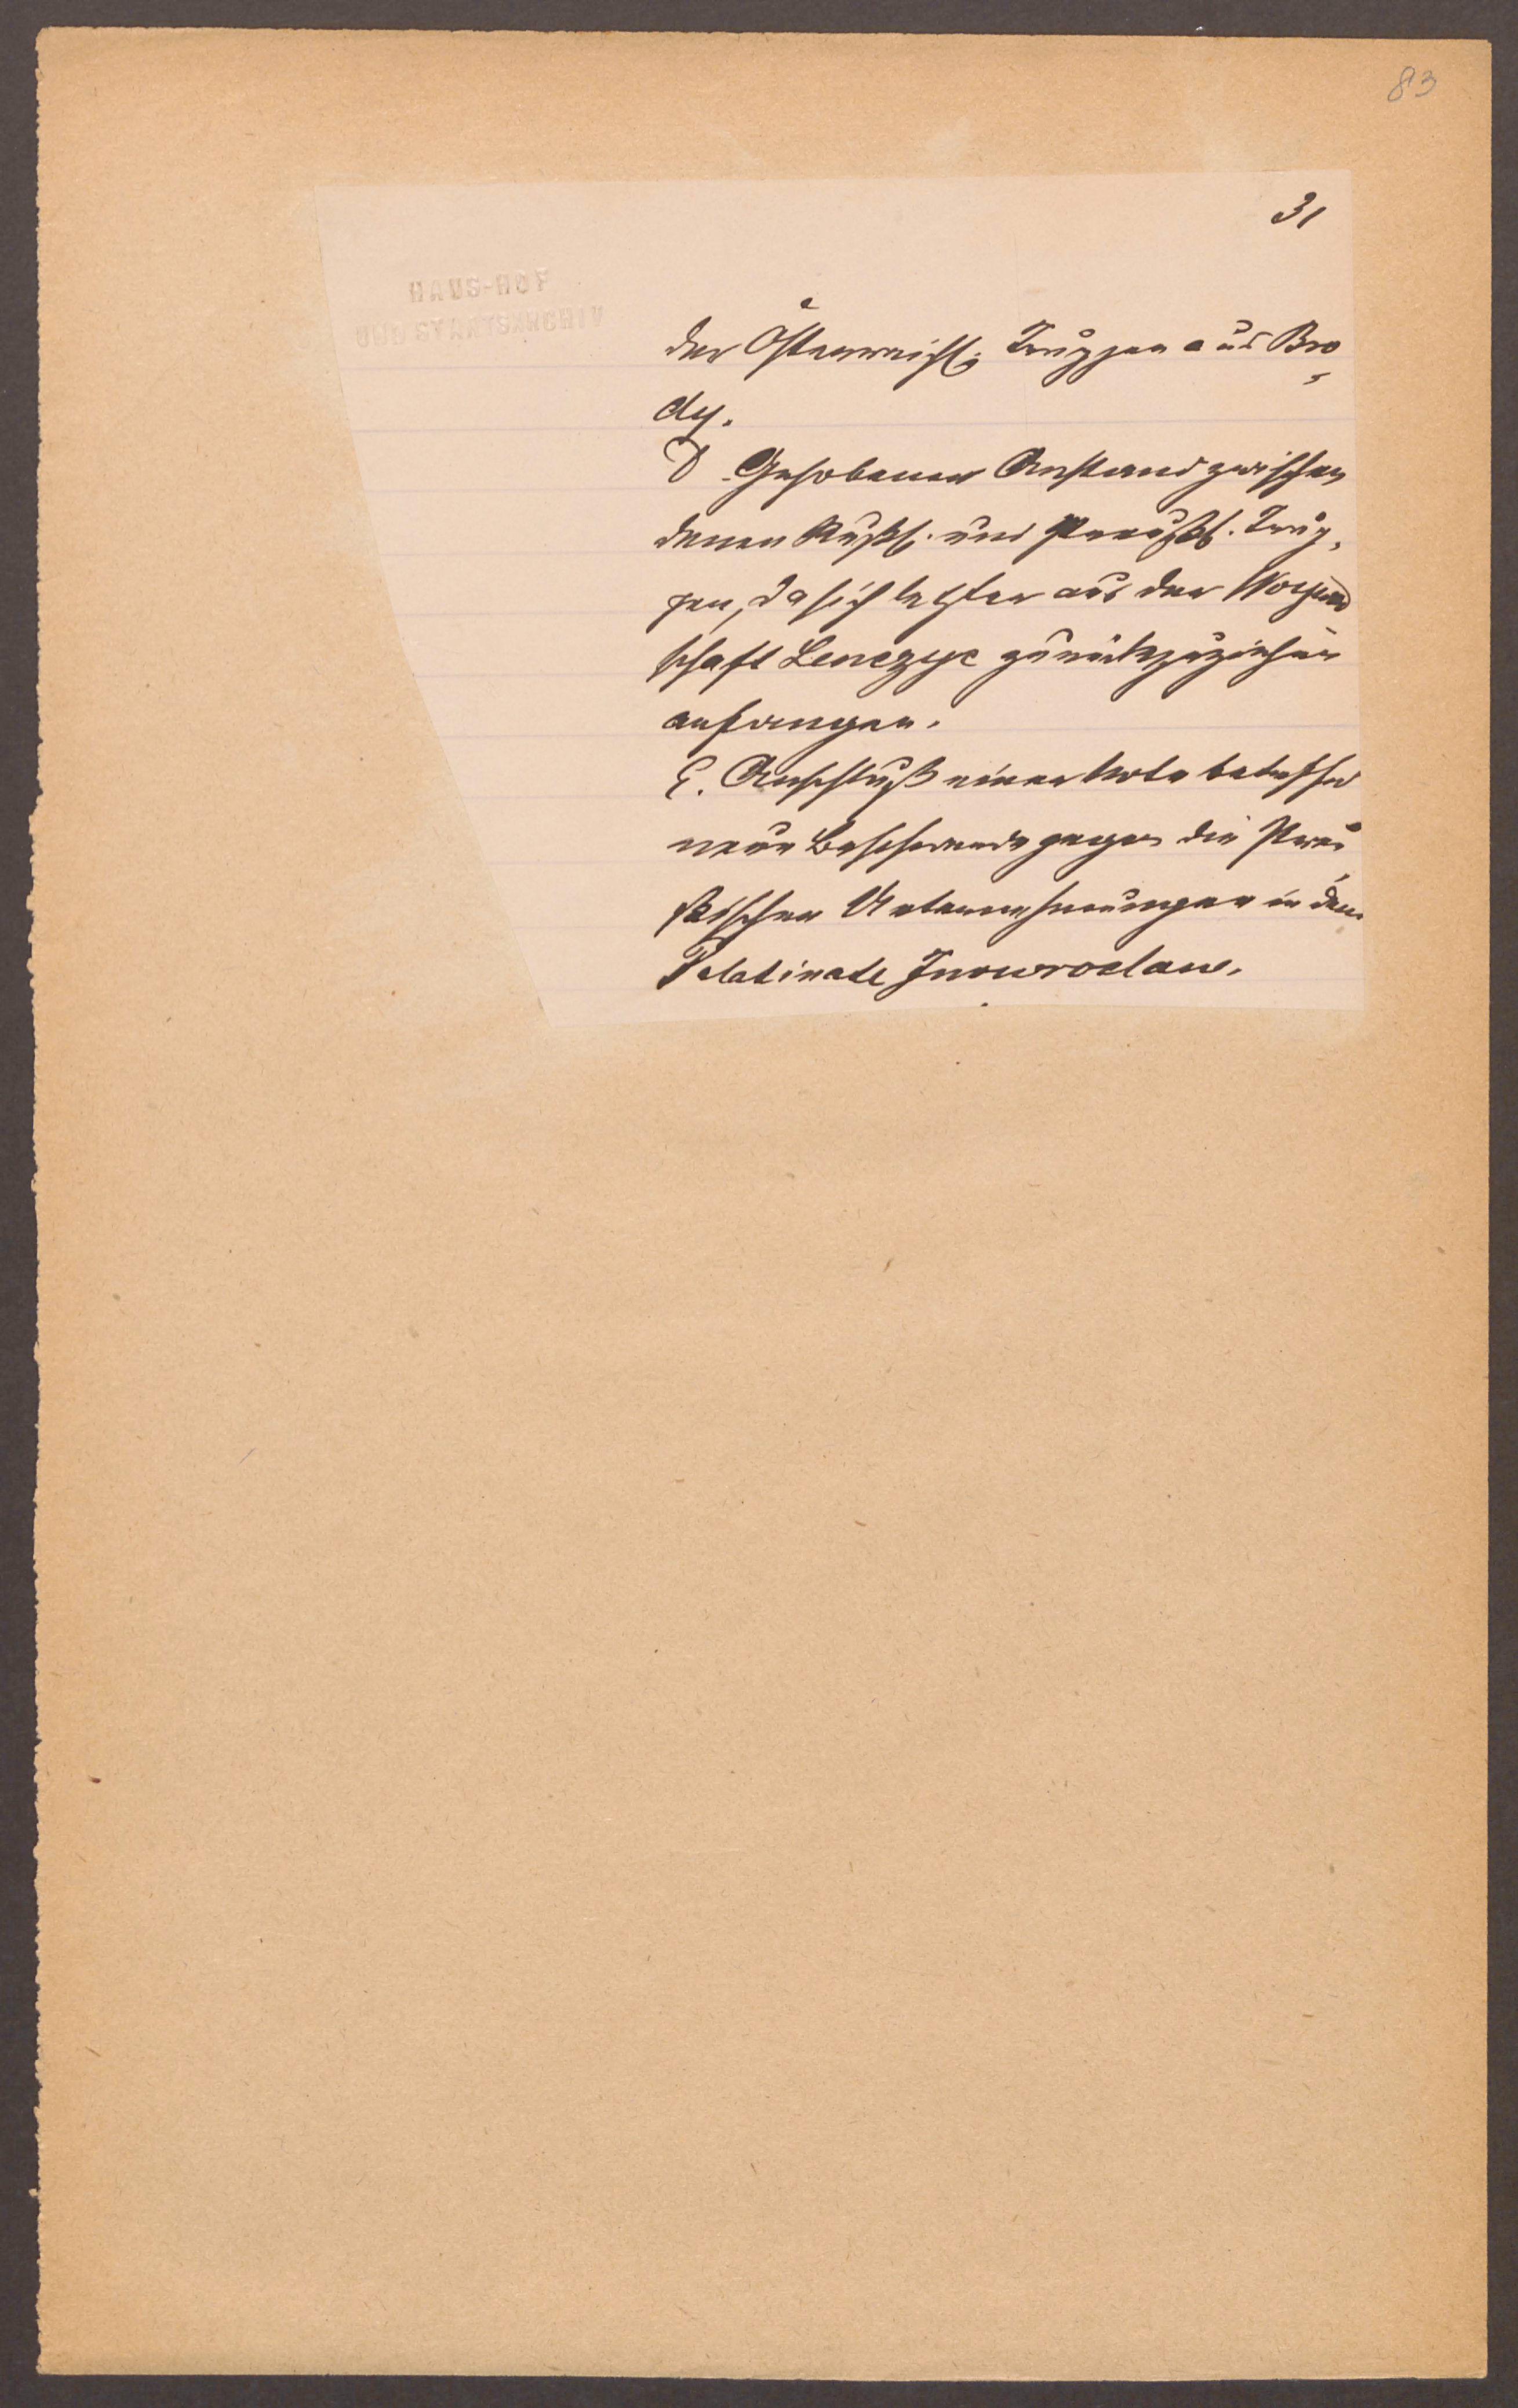 83
31
HAUS-HOF
UND STAATSARCHIV
der Österreich. Truppen aus Bro-
dy.
D. Gehobener Anstand zwischen
denen Russch. und Preussch. Trup-
pen, da sich letzter aus der Woywod
schaft Lenczyc zurückzuziehen
anfangen.
E. Anschluß einer Nota betreffend
neue Beschwerde gegen die Preu-
ßischen Unternehmungen in dem
Palatinate Inowroclaw.